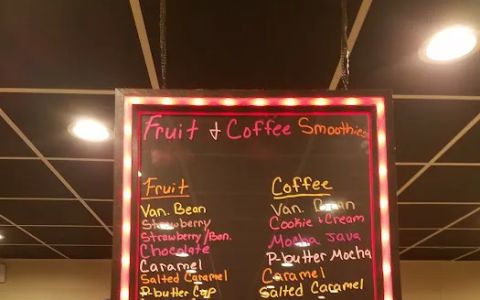 Fruit & Coffee Smoothies
Fruit
Van. Bean
Strawberry
Strawberry/Ban.
Chocolate
Caramel
Salted Caramel
P-butter Cup
Coffee
Van. Bean
Cookie & Cream
Mocha Java
P-butter Mocha
Caramel
Salted Caramel